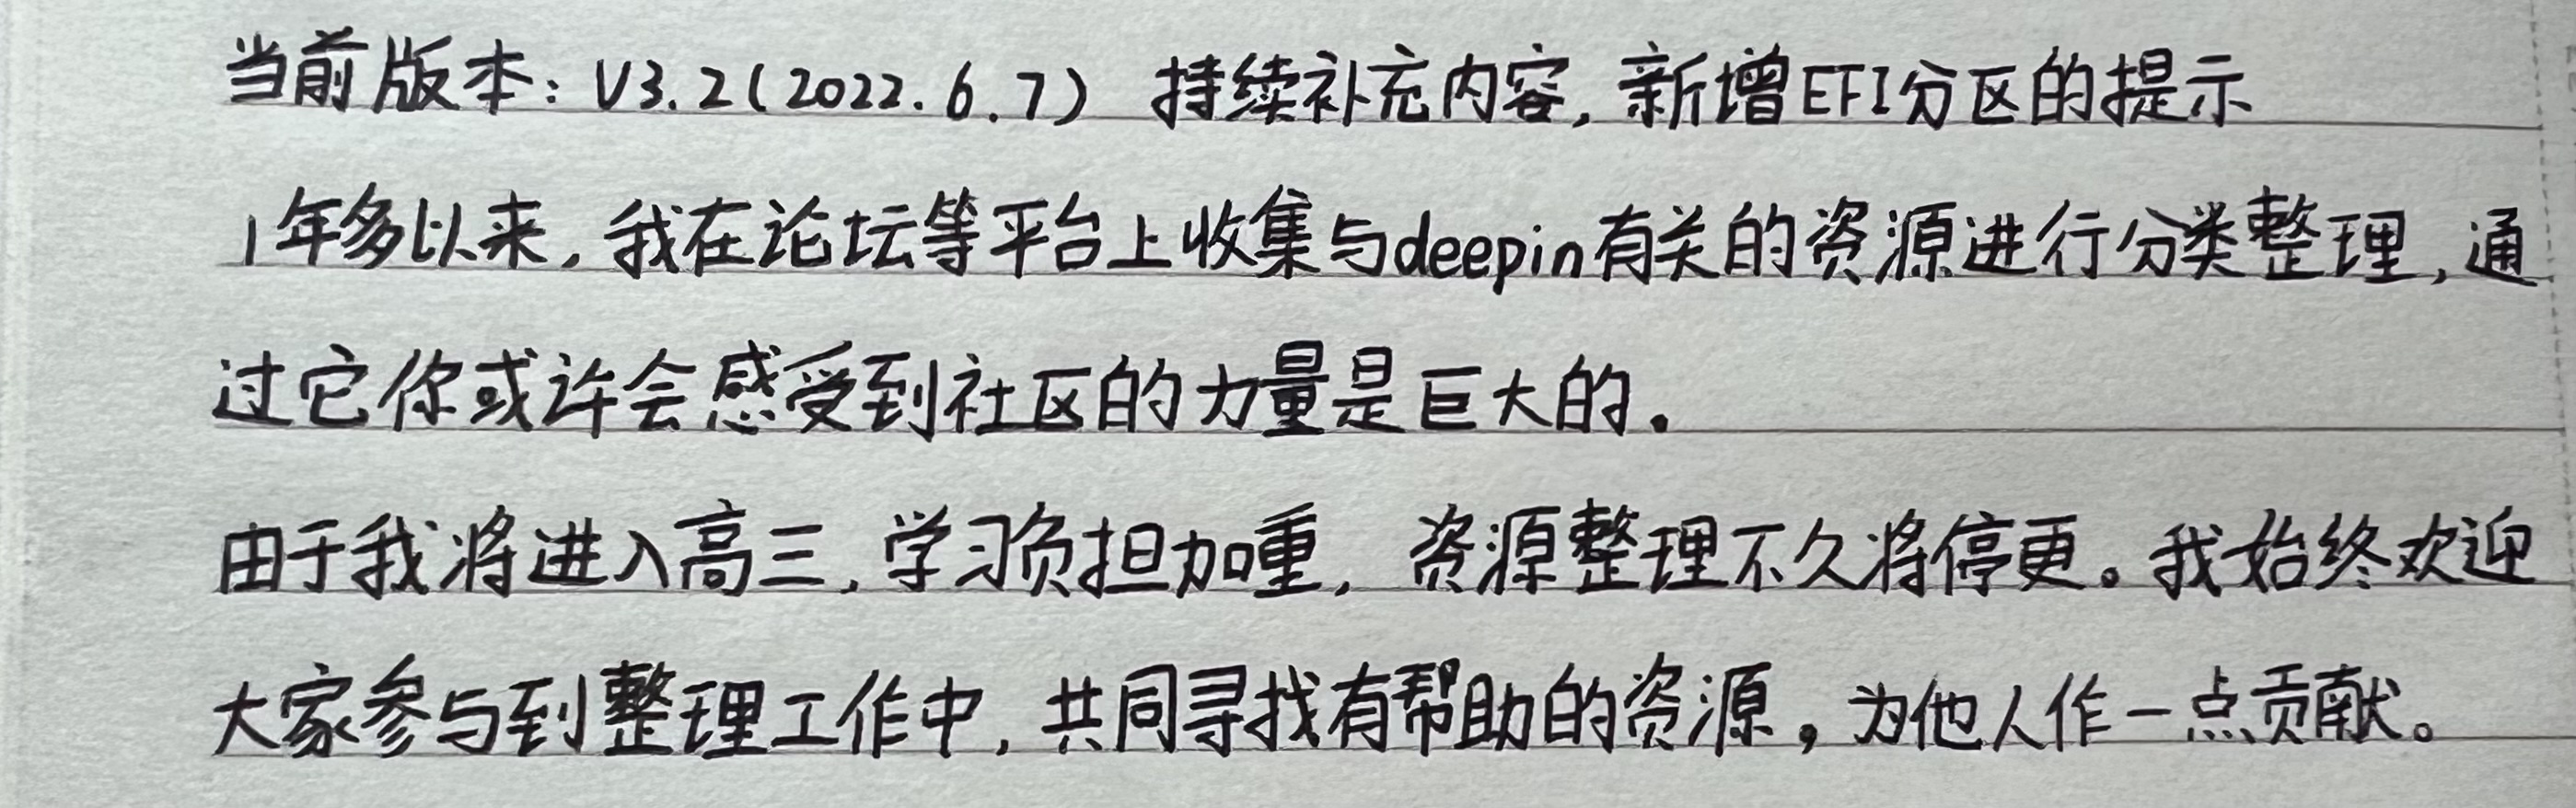 当前版本：V3.2(2022.6.7) 持续补充内容，新增EFI分区的提示
1年多以来，我在论坛等平台上收集与deepin有关的资源进行分类整理，通
过它你或许会感受到社区的力量是巨大的。
由于我将进入高三，学习负担加重，资源整理不久将停更。我始终欢迎
大家参与到整理工作中，共同寻找有帮助的资源，为他人作一点贡献。